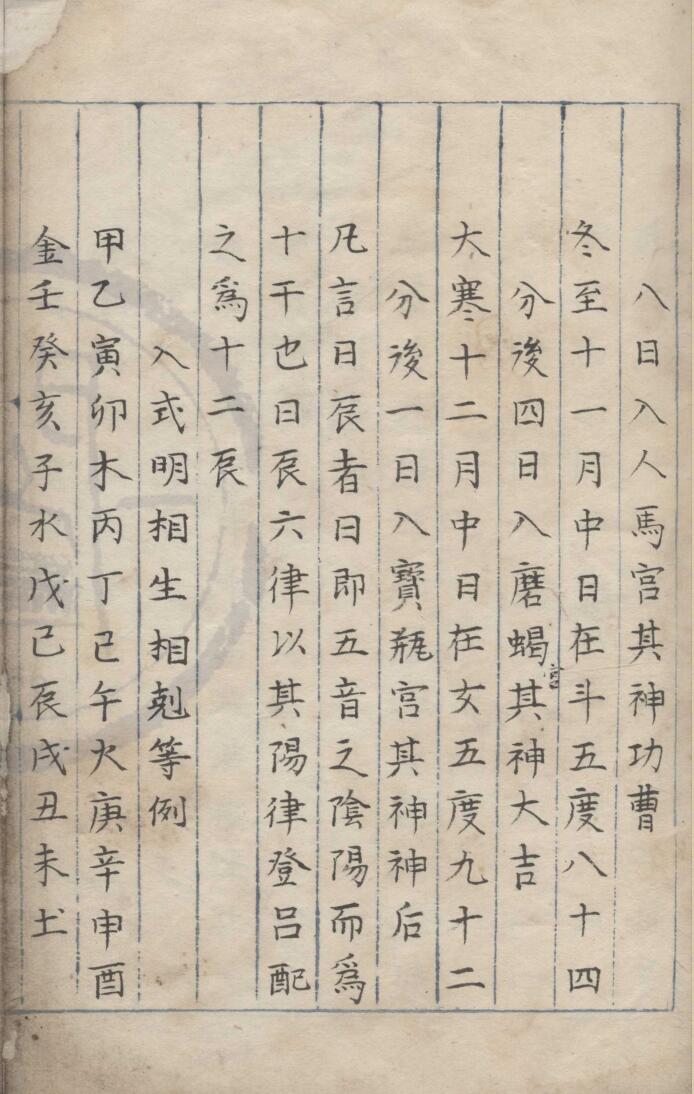 八日入人馬宫其神功曹
冬至十一月中日在斗五度八十四
分後四日入磨蝎宫其神大吉
大寒十二月中日在女五度九十二
分後一日入寶瓶宫其神神后
凡言日辰者日即五音之陰陽而爲
十干也日辰六律以其陽律登吕配
之爲十二辰
入式明相生相剋等例
甲乙寅卯木丙丁己午火庚辛申酉
金壬癸亥子水戊己辰戌丑未土